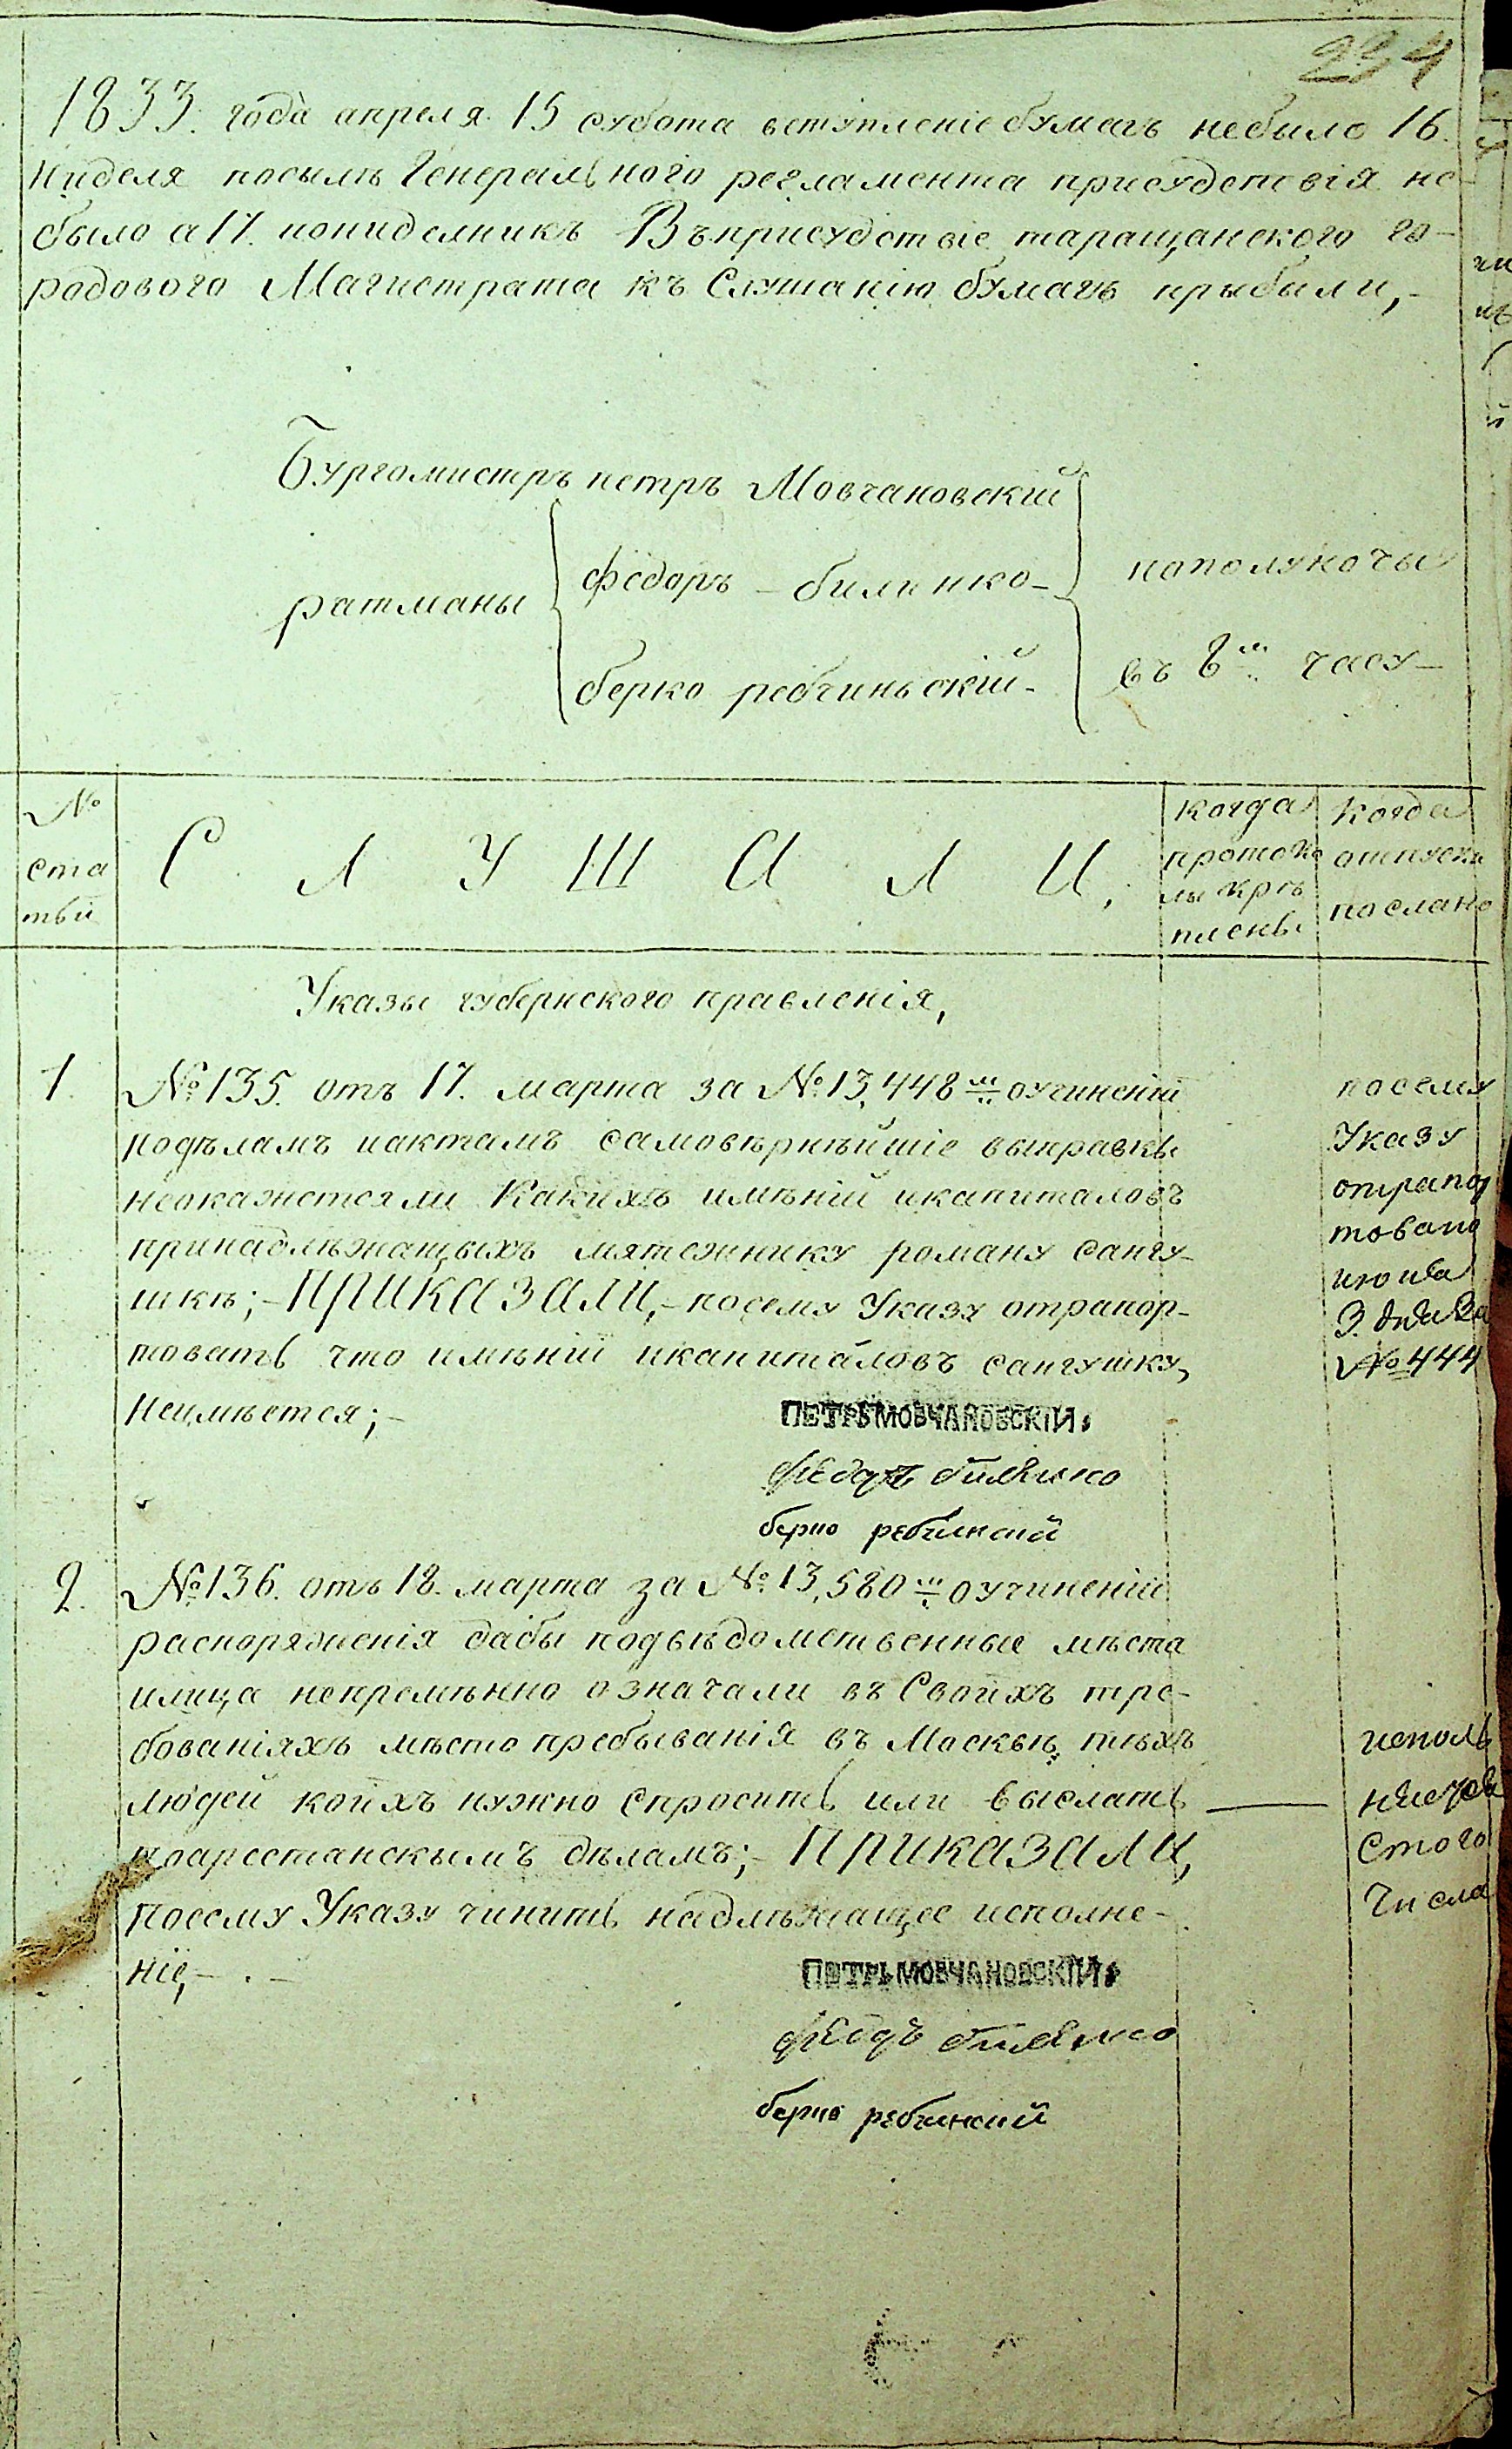 234
1833. года апреля 15 субота вступленіе бумагъ небыло 16.
ниделя посылъ Генерального регламента присудствія не-
было а 17. понидельникъ Въприсудствіе таращанского го-
родового Магистрата къ Слушанію бумагъ прыбыли,-
Бургомистръ петръ Мовчановскій
ратманы
фёдоръ - билинко-
пополуночы
берко ребчиньскій-
въ 8м часу-
№ ста тьи
С Л У Ш А Л И,
когда протоко лы крѣ плены
Когда отпуски послано
Указы губернского правленія,
1. №135. отъ 17. марта за №13,448м оучиненіи
подѣламъ иактамъ самовѣрнѣйшіе выправкы
неокажется ли Какихъ имѣній икапиталовъ
принадлѣжащыхъ мятежнику роману сангу-
шкѣ;- ПРИКАЗАЛИ,- посему Указу отрапор-
товать что имѣній икапиталовъ сангушку,
Неимѣется;-
посему
Указу
отрапор
товано
июня
3. дня За
№444
ПЕТРЪ МОВЧАНОВСКІЙ
фѣдоръ билѣнко
берко ребчинский
2. №136. отъ 18. марта за №13,580м оучиненіи
распоряженія дабы подвѣдомственные мѣста
илица непремѣнно означали въ Своихъ тре-
бованіяхъ мѣсто пребыванія въ Москвѣ, тѣхъ
людей коихъ нужно Спросить или выслать
поарестанскымъ дѣламъ;- ПРИКАЗАЛИ,
посему Указу чинить надлѣжащее исполне-
ніе,- . -
исполь
няется
Стого
Числа
ПЕТРЪ МОВЧАНОВСКІЙ
фѣдоръ билѣнко
берко ребчинский